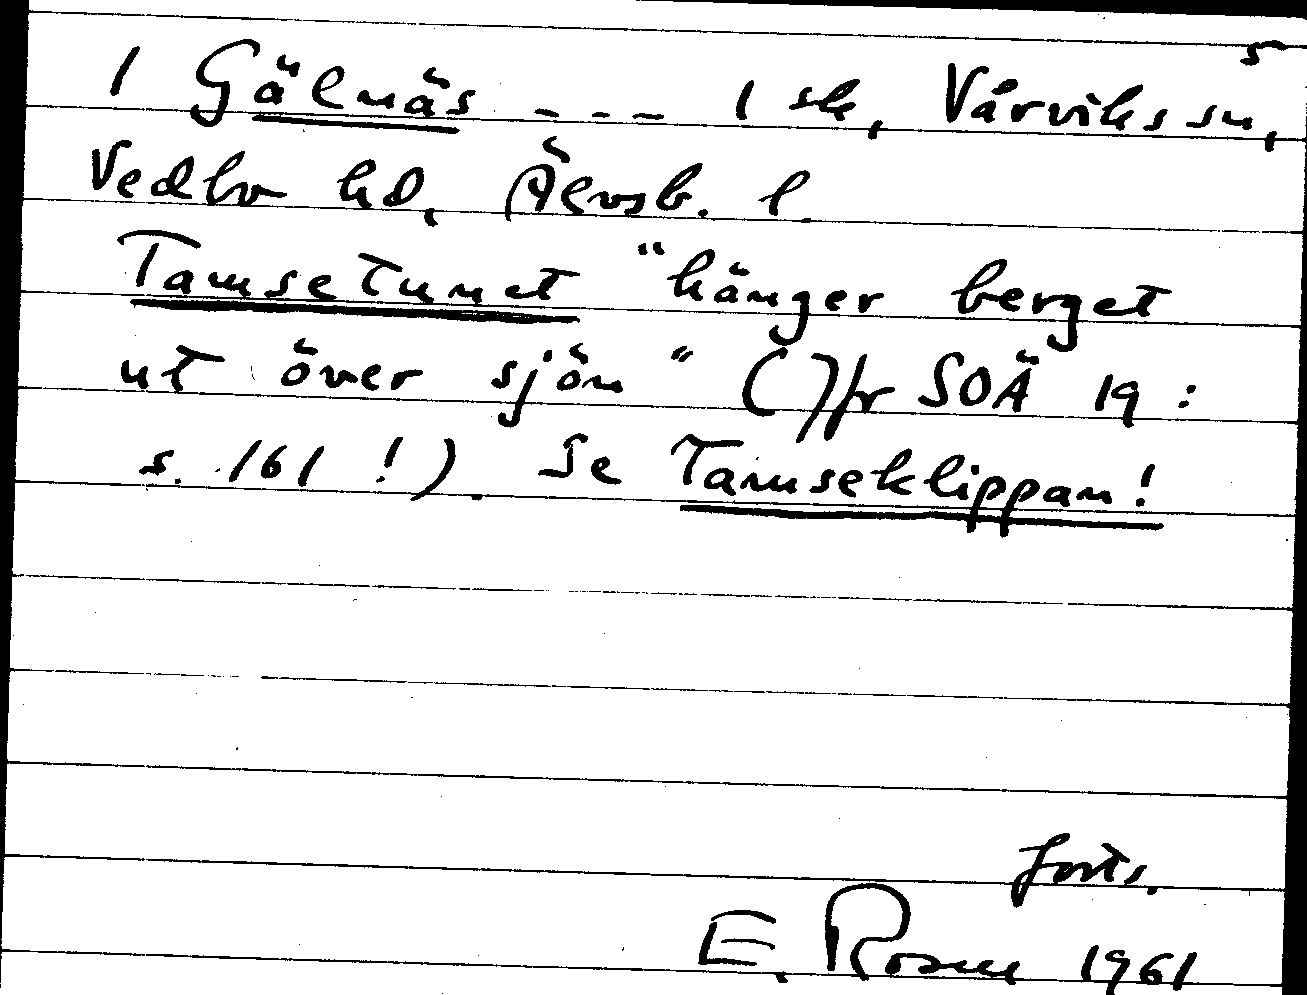 5
1 Gälnäs - - - 1 sk, Vårviks sn,
Vedbo hd, Älvsb. l.
Tamsetunet "hänger berget
ut över sjön" (Jfr SOÄ 19:
s. 161!). Se Tamseklippan!
forts.
E. Rosell 1961